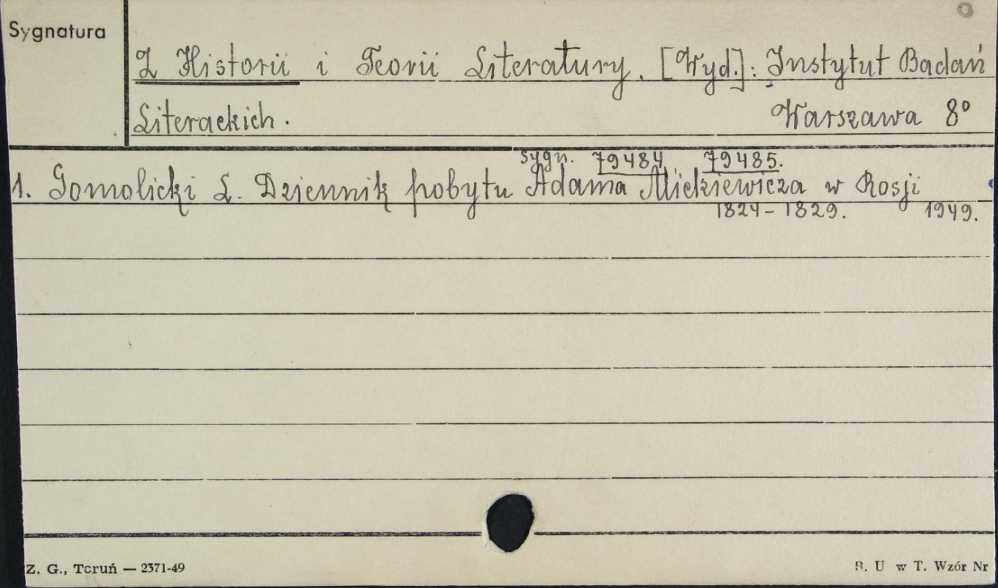 Sygnatura
Z Historii i Teorii Literatury. [Wyd.]: Instytut Badań
Literackich. Warszawa 8°
sygn. 79484 79485.
1. Gomolicki L. Dziennik pobytu Adama Mickiewicza w Rosji
1824-1829. 1949.
Z. G., Toruń — 2371-49 B. U w T. Wzór Nr